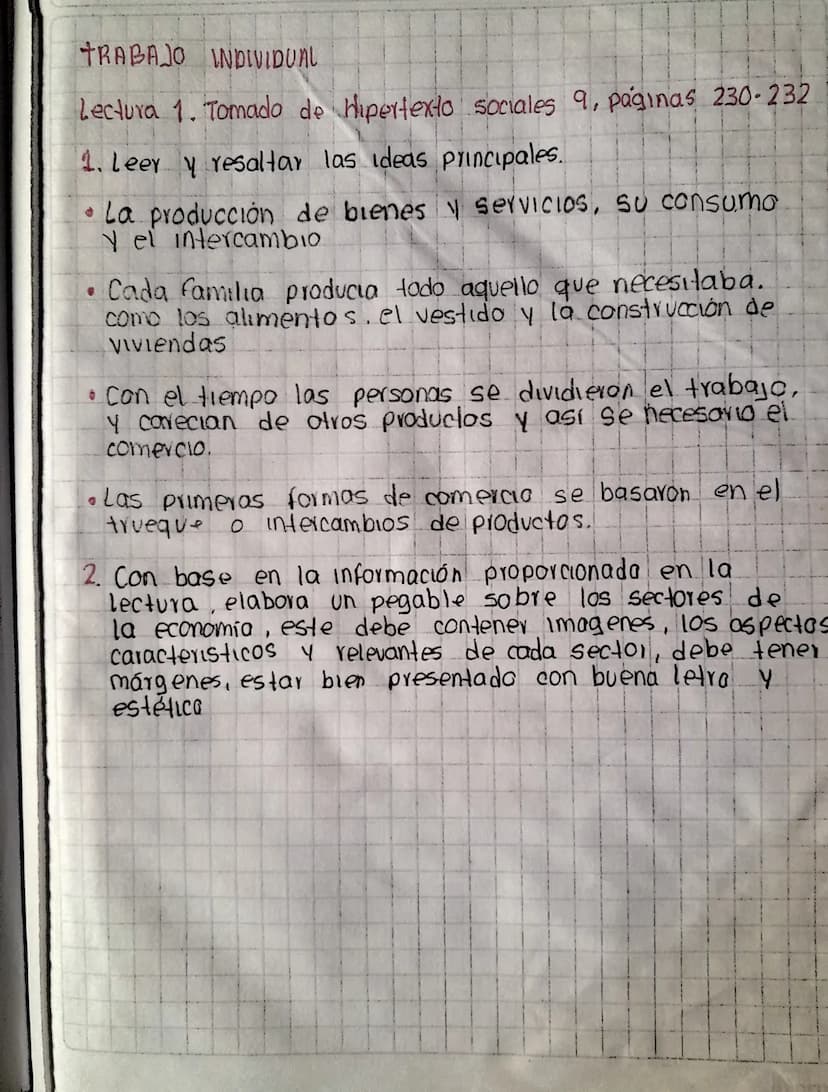 TRABAJO INDIVIDUAL
Lectura 1. Tomado de Hipertexto sociales 9, páginas 230-232
1. Leer y resaltar las ideas principales.
• La producción de bienes y servicios, su consumo
y el intercambio
• Cada familia producia todo aquello que necesitaba.
como los alimentos. el vestido y la construcción de
viviendas
• Con el tiempo las personas se dividieron el trabajo,
y carecian de otros productos y así se necesario el
comercio.
• Las primeras formas de comercio se basaron en el
trueque o intercambios de productos.
2. Con base en la información proporcionada en la
lectura, elabora un pegable sobre los sectores de
la economía, este debe contener imagenes, los aspectos
caracteristicos y relevantes de cada sector, debe tener
márgenes, estar bien presentado con buena letra y
estético